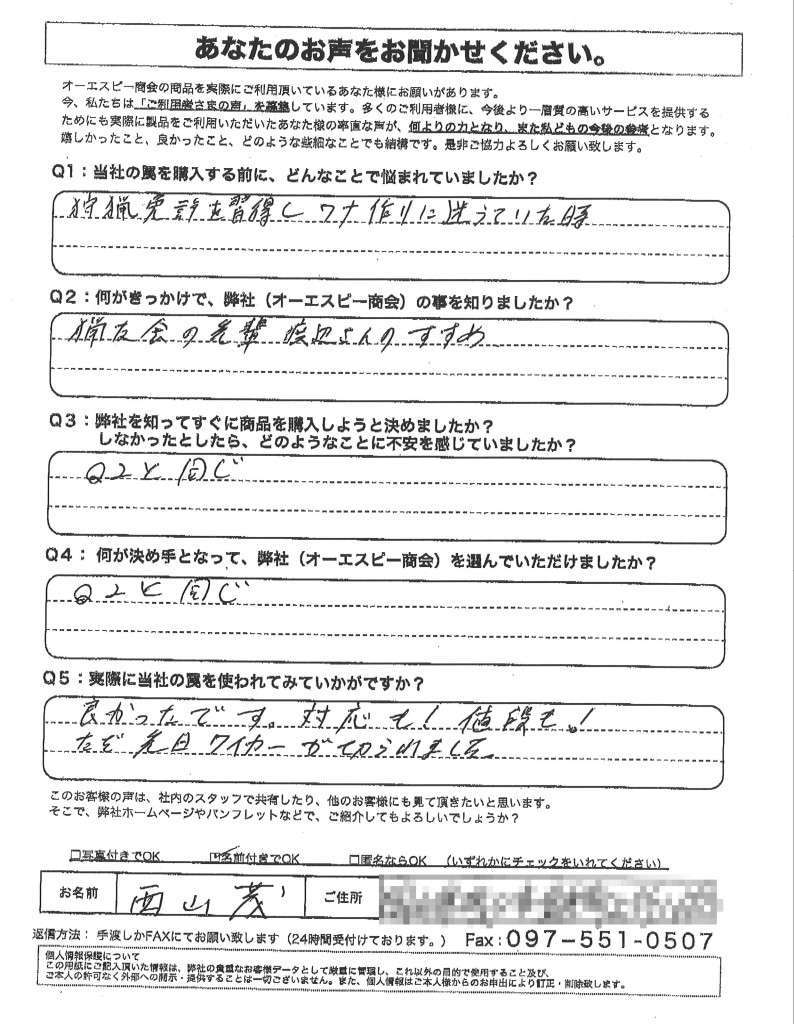 あなたのお声をお聞かせください。
オーエスピー商会の商品を実際にご利用頂いているあなた様にお願いがあります。
今、私たちは「ご利用者さまの声」を募集しています。多くのご利用者様に、今後より一層質の高いサービスを提供する
ためにも実際に製品をご利用いただいたあなた様の率直な声が、何よりの力となり、また私どもの今後の参考となります。
嬉しかったこと、良かったこと、どのような些細なことでも結構です。是非ご協力よろしくお願い致します。
Q1：当社の罠を購入する前に、どんなことで悩まれていましたか？
狩猟免許を習得しワナ作りに迷っていた時
Q2：何がきっかけで、弊社（オーエスピー商会）の事を知りましたか？
猟友会の先輩 渡辺さんのすすめ
Q3：弊社を知ってすぐに商品を購入しようと決めましたか？
しなかったとしたら、どのようなことに不安を感じていましたか？
Q2と同じ
Q4：何が決め手となって、弊社（オーエスピー商会）を選んでいただけましたか？
Q2と同じ
Q5：実際に当社の罠を使われてみていかがですか？
良かったです。対応も！値段も！
ただ先日ワイヤーが切られました。
このお客様の声は、社内のスタッフで共有したり、他のお客様にも見て頂きたいと思います。
そこで、弊社ホームページやパンフレットなどで、ご紹介してもよろしいでしょうか？
□写真付きでOK ☑名前付きでOK □匿名ならOK （いずれかにチェックをいれてください）
お名前 西山 茂 ご住所
返信方法： 手渡しかFAXにてお願い致します（24時間受付けております。） Fax：097-551-0507
個人情報保護について
この用紙にご記入頂いた情報は、弊社の貴重なお客様データとして厳重に管理し、これ以外の目的で使用すること及び、
ご本人の許可なく外部への開示・提供することは一切ございません。また、個人情報はご本人様からのお申出により訂正・削除致します。